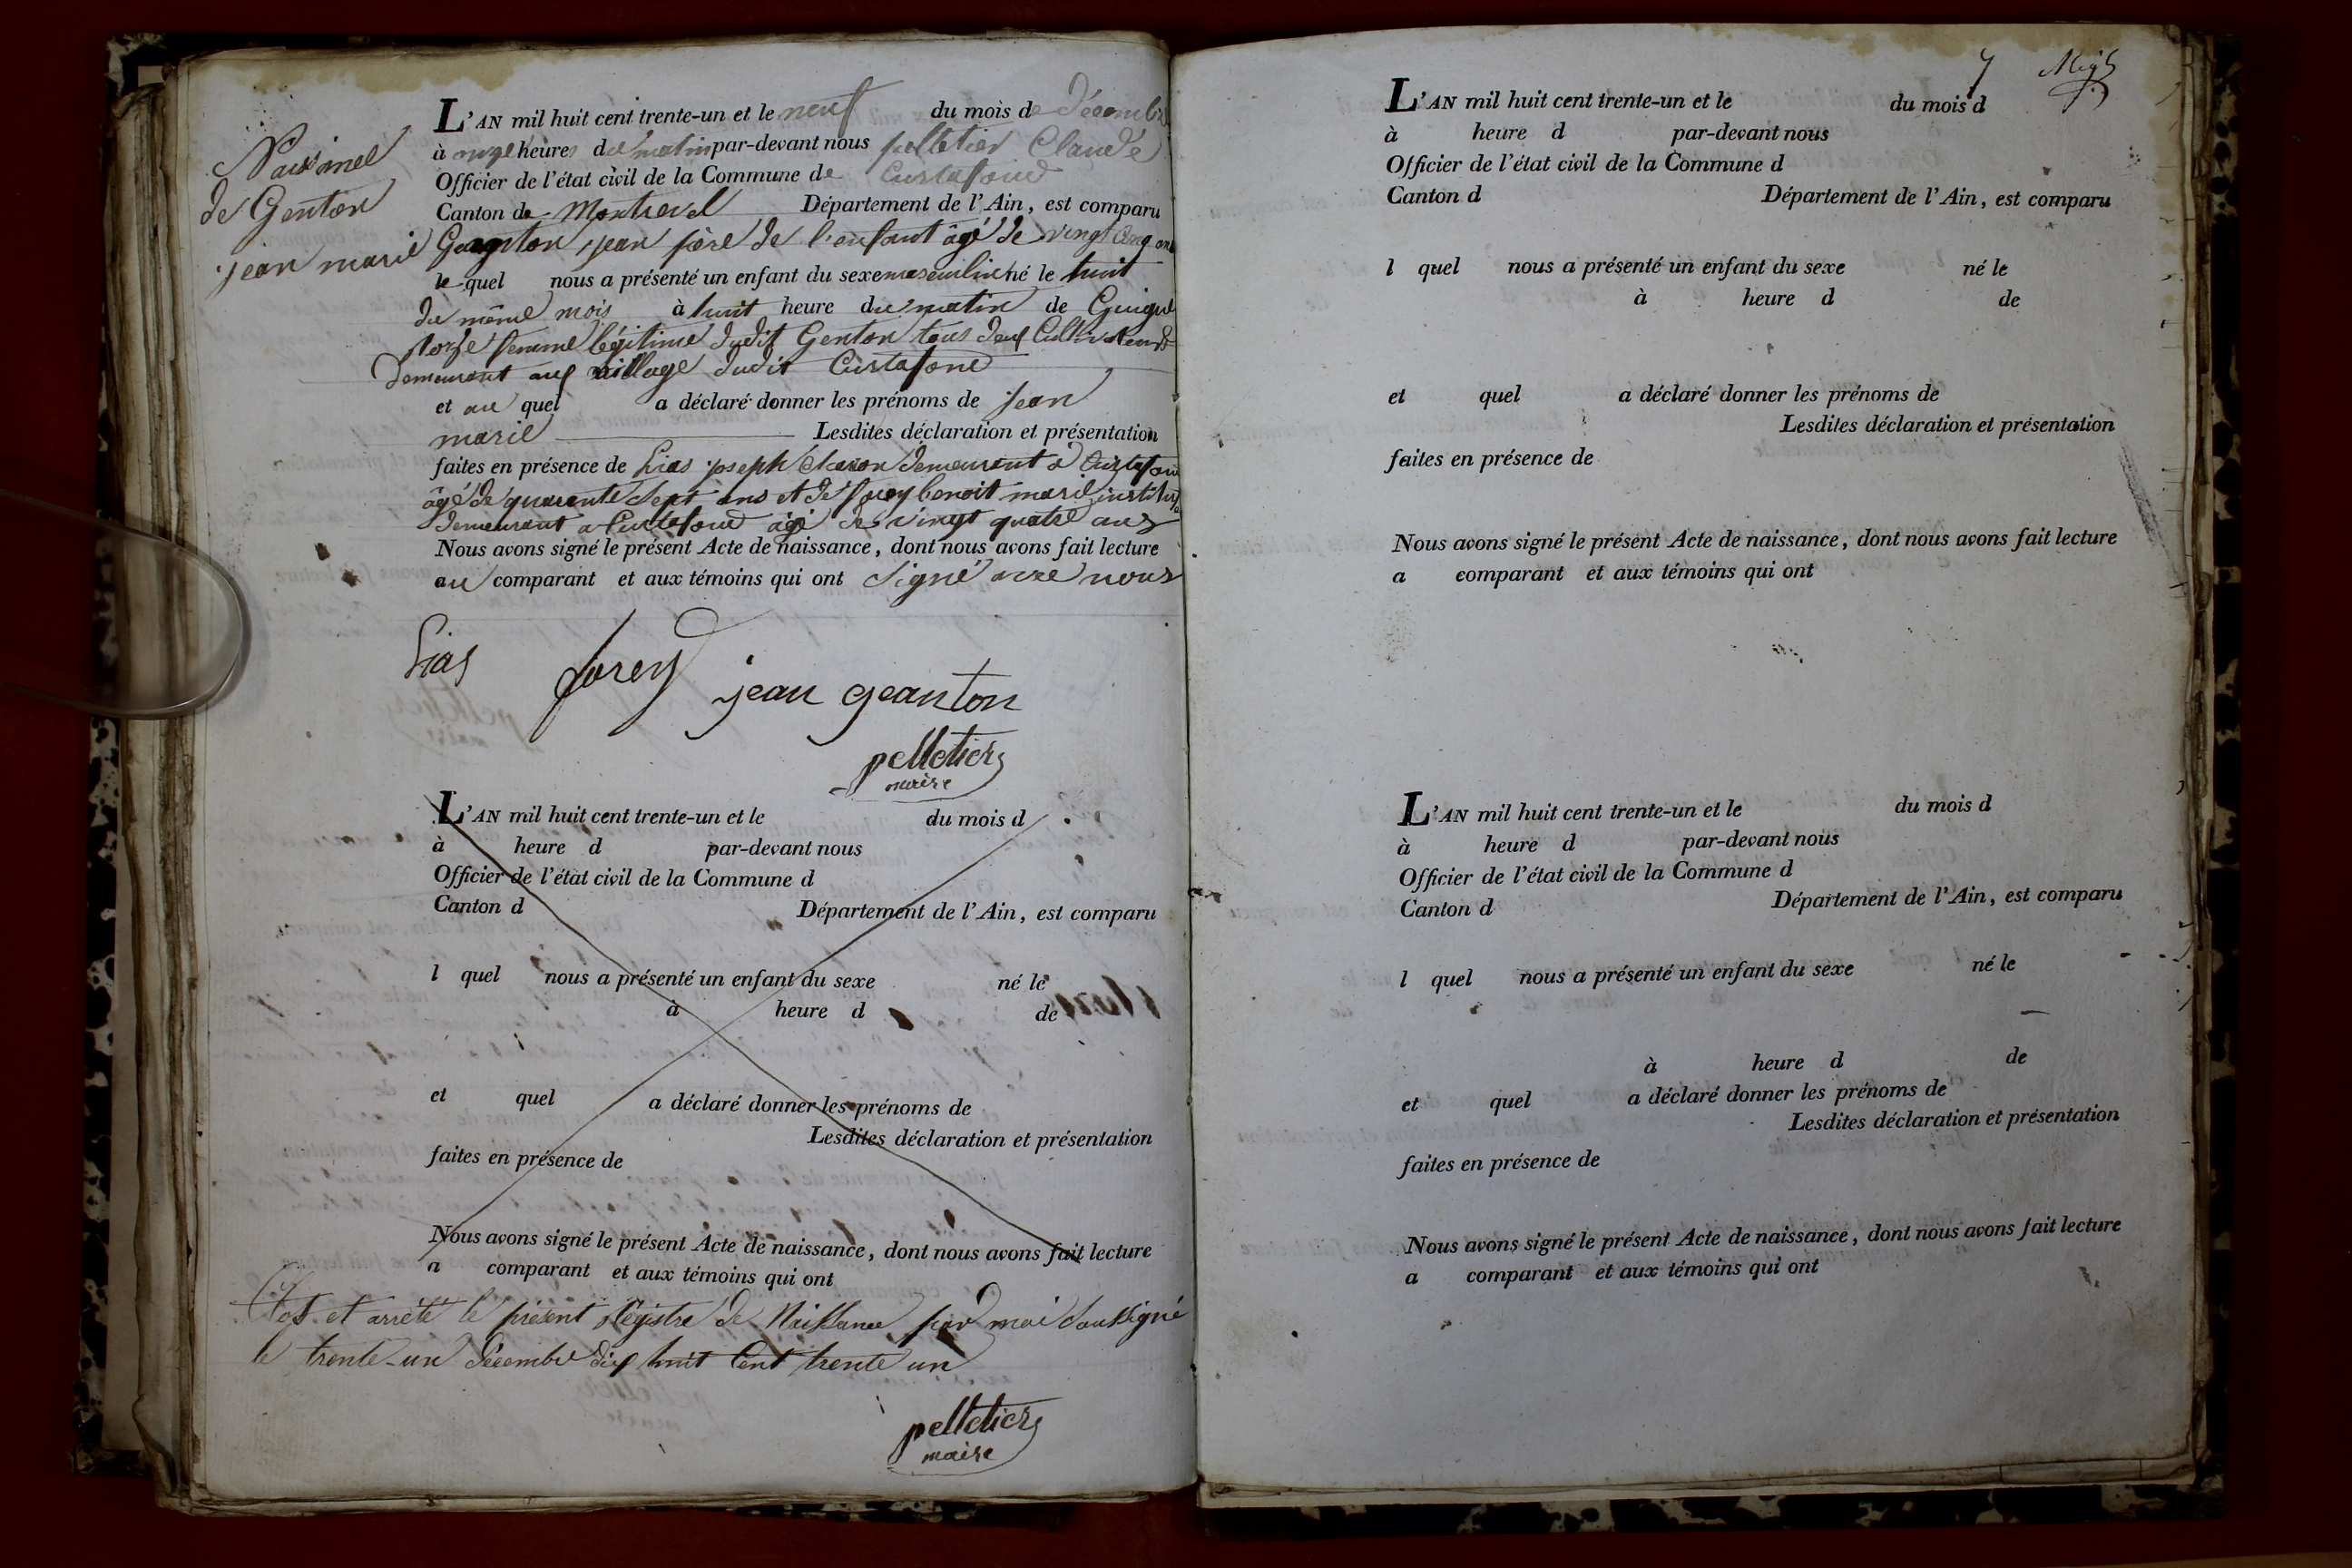 Naissance
de Genton
jean marie
L'AN mil huit cent trente-un et le neuf du mois de décembre
à onze heures du matin par-devant nous pelletier Claude
Officier de l'état civil de la Commune de Curtafond
Canton de Montrevel Département de l'Ain, est comparu
Genton, jean père de l'enfant âgé de vingt cinq ans
le quel nous a présenté un enfant du sexe masculin né le huit
du même mois à huit heure du matin de
femme légitime dudit Genton tous deux Cultivateurs
demeurant aux village dudit Curtafond
et au quel a déclaré donner les prénoms de jean
marie Lesdites déclaration et présentation
faites en présence de Lias joseph demeurant à Curtafond
âgé de quarante sept ans et de benoit marie
demeurant a Curtafond âgé de vingt quatre ans
Nous avons signé le présent Acte de naissance, dont nous avons fait lecture
au comparant et aux témoins qui ont signé avec nous
Lias jean geanton
pelletier
maire
L'AN mil huit cent trente-un et le du mois d
à heure d par-devant nous
Officier de l'état civil de la Commune d
Canton d Département de l'Ain, est comparu
l quel nous a présenté un enfant du sexe né le
à heure d de
et quel a déclaré donner les prénoms de
Lesdites déclaration et présentation
faites en présence de
Nous avons signé le présent Acte de naissance, dont nous avons fait lecture
a comparant et aux témoins qui ont
Clos et arrêté le présent Régistre de Naissance par moi soussigné
le trente-un décembre dix huit Cent trente un
pelletier
maire
7
L'AN mil huit cent trente-un et le du mois d
à heure d par-devant nous
Officier de l'état civil de la Commune d
Canton d Département de l'Ain, est comparu
l quel nous a présenté un enfant du sexe né le
à heure d de
et quel a déclaré donner les prénoms de
Lesdites déclaration et présentation
faites en présence de
Nous avons signé le présent Acte de naissance, dont nous avons fait lecture
a comparant et aux témoins qui ont
L'AN mil huit cent trente-un et le du mois d
à heure d par-devant nous
Officier de l'état civil de la Commune d
Canton d Département de l'Ain, est comparu
l quel nous a présenté un enfant du sexe né le
à heure d de
et quel a déclaré donner les prénoms de
Lesdites déclaration et présentation
faites en présence de
Nous avons signé le présent Acte de naissance, dont nous avons fait lecture
a comparant et aux témoins qui ont